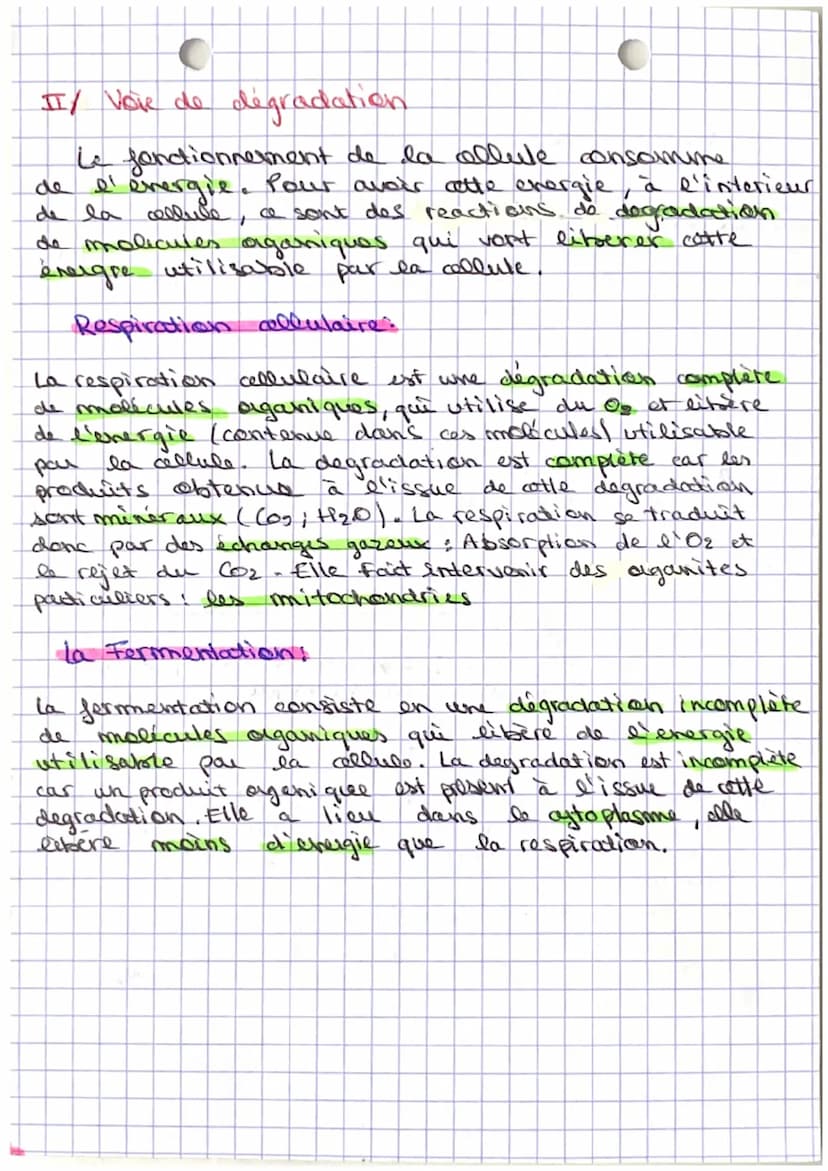 II/ Voie de dégradation
Le fonctionnement de la cellule consomme
de l'énergie. Pour avoir cette energie, à l'interieur
de la cellule, ce sont des reactions de dégradation
de molécules organiques qui vont liberer cette
énergie utilisable par la cellule.
Respiration cellulaire:
La respiration cellulaire est une dégradation complète
de molécules organiques, qui utilise du O2 et libère
de l'énergie (contenue dans ces molécules) utilisable
par la cellule. La degradation est complète car les
produits obtenus à l'issue de cette dégradation
sont minéraux (CO2 ; H2O). La respiration se traduit
donc par des échanges gazeux : Absorption de l'O2 et
le rejet du CO2. Elle fait intervenir des organites
particuliers : les mitochondries
La Fermentation:
La fermentation consiste en une dégradation incomplète
de molécules organiques qui libère de l'énergie
utilisable par la cellule. La degradation est incomplète
car un produit organique est présent à l'issue de cette
degradation. Elle a lieu dans le cytoplasme, elle
libère moins d'énergie que la respiration.